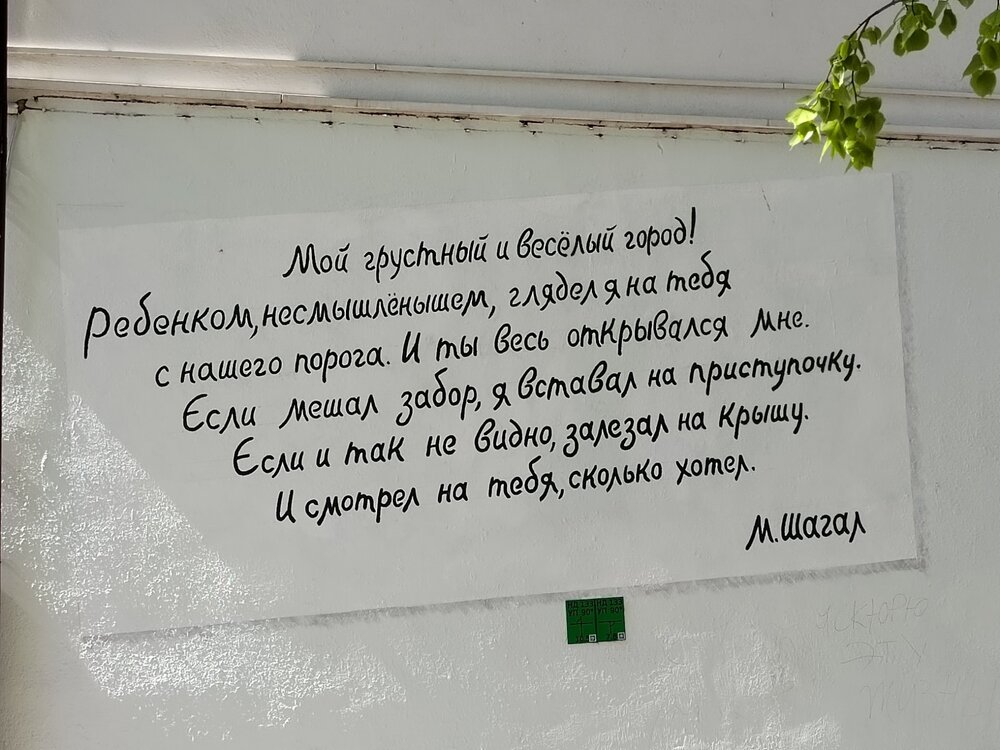 Мой грустный и весёлый город!
Ребенком, несмышлёнышем, глядел я на тебя
с нашего порога. И ты весь открывался мне.
Если мешал забор, я вставал на приступочку.
Если и так не видно, залезал на крышу.
И смотрел на тебя, сколько хотел.
М. Шагал